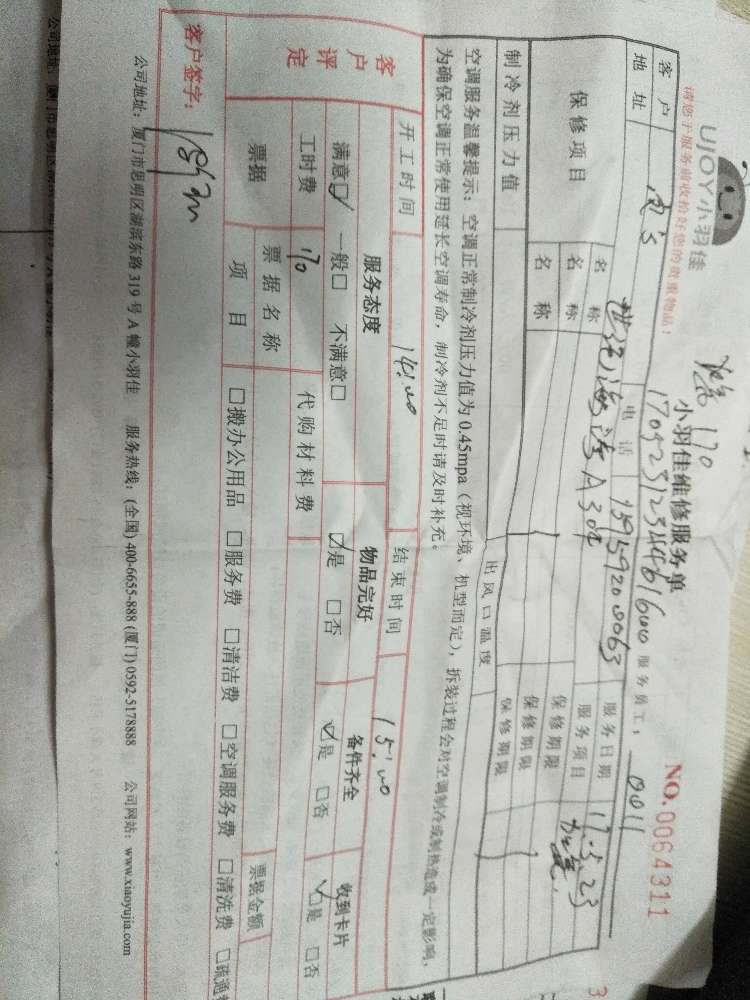 UJOY小羽佳
小羽佳维修服务单
NO.0064311
17052312344861600
170
请您于服务前收拾好您的贵重物品！
服务员工： 0011
客户
电话 15959200063
服务日期 17.5.23
地址
A304
服务项目
保修项目
名称
保修期限
名称
保修期限
名称
保修期限
制冷剂压力值
出风口温度
空调服务温馨提示：空调正常制冷剂压力值为0.45mpa（视环境、机型而定），拆装过程会对空调制冷或制热造成一定影响，
为确保空调正常使用延长空调寿命，制冷剂不足时请及时补充。
开工时间 14:00 结束时间 15:00
客户评定
服务态度 物品完好 备件齐全 收到卡片
满意☑ 一般□ 不满意□ ☑是 □否 ☑是 □否 ☑是 □否
工时费 170 代购材料费
票据 票据名称 票据金额
项目 □搬办公用品 □服务费 □清洁费 □空调服务费 □清洗费 □疏通
客户签字：
公司地址：厦门市思明区湖滨东路319号A幢小羽佳 服务热线：(全国) 400-6655-888 (厦门) 0592-5178888 公司网站：www.xiaoyujia.com